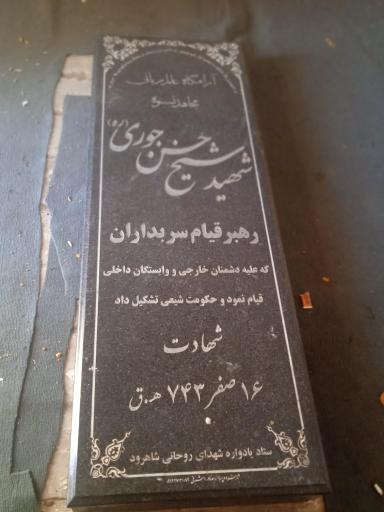 آرامگاه عالم ربانی
مجاهد نستوه
شهید شیخ حسن جوری (ره)
رهبر قیام سربداران
که علیه دشمنان خارجی و وابستگان داخلی
قیام نمود و حکومت شیعی تشکیل داد
شهادت
۱۶ صفر ۷۴۳ ه.ق
ستاد یادواره شهدای روحانی شاهرود